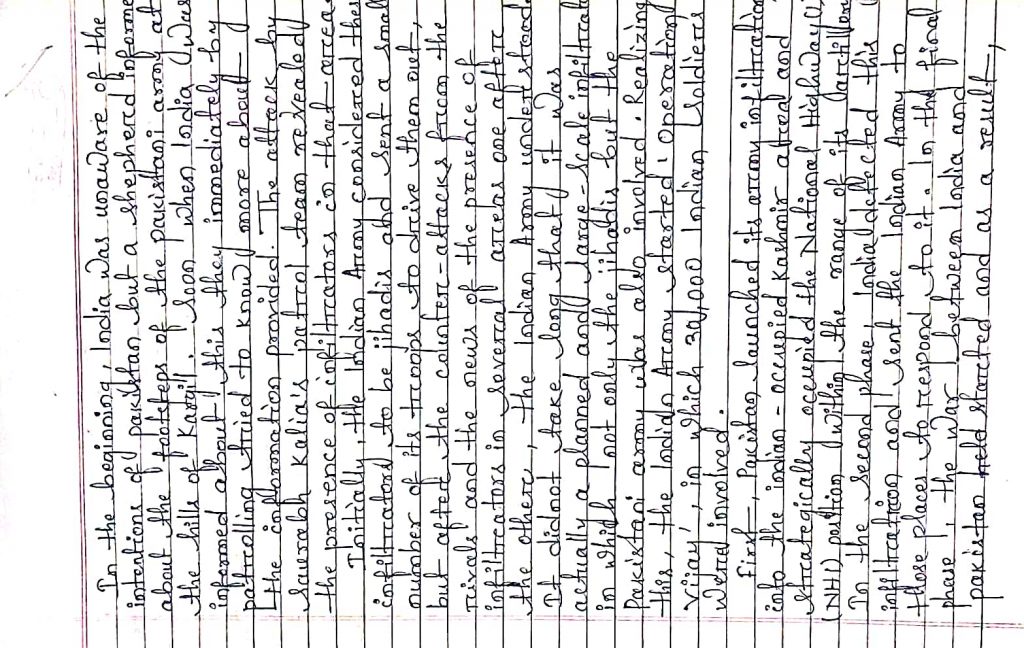 In the beginning, India was unaware of the
intentions of pakistan but a shepherd informe
about the footsteps of the pakistani army at
the hills of Kargil. Soon when India was
informed about this they immediately by
patrolling tried to know more about
the information provided. The attack by
Saurabh Kalia's patrol team revealed
the presence of infiltrators in that area
Initially, the Indian Army considered thes
infiltrators to be jihadis and sent a small
number of its troops to drive them out,
but after the counter-attacks from the
rivals and the news of the presence of
infiltrators in several areas one after
the other, the Indian Army understood
It didnot take long that it was
actually a planned and large-scale infiltrat
in which not only the jihadis but the
Pakistani army was also involved. Realizing
this, the Indian Army started 'Operation
Vijay', in which 30,000 Indian Soldiers
were involved.
First, Pakistan launched its army infiltration
into the Indian-occupied Kashmir area and
strategically occupied the National Highway
(NH1) position within the range of its artillery
In the second phase, India detected this
infiltration and sent the Indian Army to
those places to respond to it. In the final
phase, the war between India and
pakistan started and as a result,